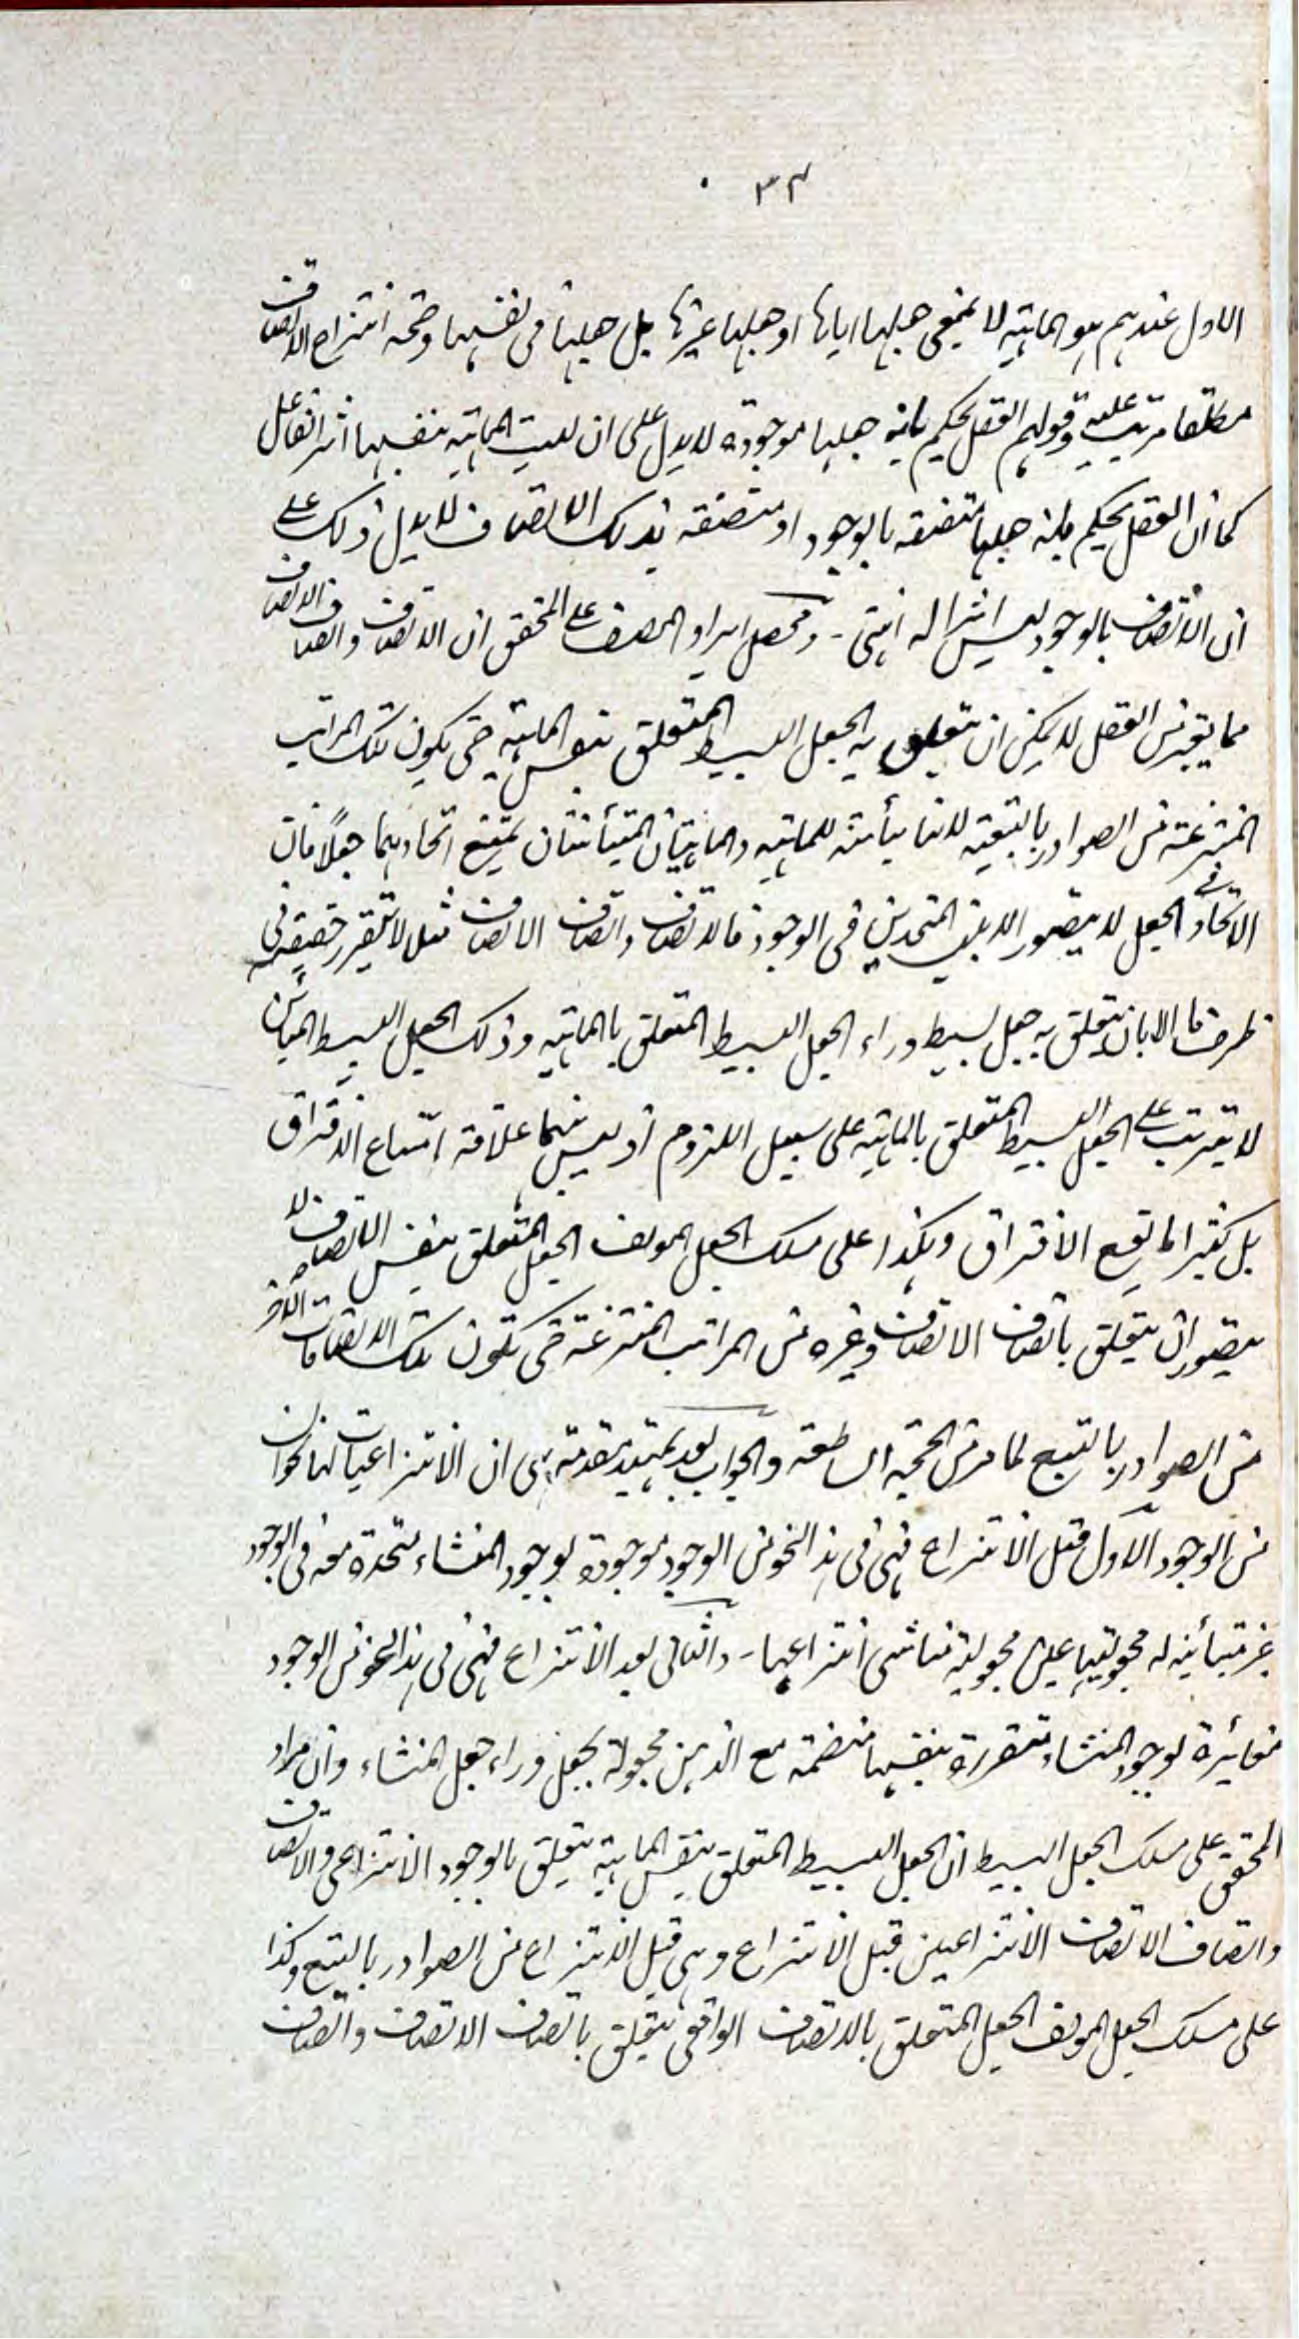 ٣٤
الاول عندهم هو الماهية لا بمعنى جعلها اياها او جعلها غيرها بل جعلها في نفسها وصحة انتزاع الاتصاف
مطلقا مترتب عليه وقولهم العقل يحكم بانه جعلها موجودة لا يدل على ان ليست الماهية بنفسها اثر الفاعل
كما ان العقل يحكم بانه جعلها متصفة بالوجود او متصفة بذلك الاتصاف لا يدل ذلك على
ان الاتصاف بالوجود ليس اثرا له انتهى - ومحصل ايراد المصنف على المحقق ان الاتصاف واتصاف الاتصاف
مما يعتبرهن العقل لا يمكن ان يتعلق به الجعل البسيط المتعلق بنفس الماهية حتى يكون تلك المراتب
المنتزعة من الصوادر بالتبعية لانها مبائنة للماهية والماهيتان المتبائنتان يمتنع اتحادهما جعلا فان
الاتحاد في الجعل لا يتصور الا بين المتحدين في الوجود فالاتصاف واتصاف الاتصاف مثلا لا تتقرر حقيقة في
ظرف ما الا بان يتعلق به جعل بسيط وراء الجعل البسيط المتعلق بالماهية وذلك الجعل البسيط المبائن
لا يترتب على الجعل البسيط المتعلق بالماهية على سبيل اللزوم اذ ليس بينهما علاقة امتناع الافتراق
بل كثيرا ما يقع الافتراق وهكذا على مسلك الجعل المولف الجعل المتعلق بنفس الاتصاف لا
يتصور ان يتعلق باتصاف الاتصاف وغيره من المراتب المنتزعة حتى تكون تلك الاتصافات الاخر
من الصوادر بالتبع لما مر من الحجة الساطعة والجواب بعد تمهيد مقدمة هي ان الانتزاعيات لها نحوان
من الوجود الاول قبل الانتزاع فهي في هذا النحو من الوجود موجودة بوجود المنشاء متحدة معه في الوجود
غير متبائنة له مجعوليتها عين مجعولية مناشى انتزاعها - والثاني بعد الانتزاع فهي في هذا النحو من الوجود
مغائرة لوجود المنشاء متقررة بنفسها منضمة مع الذهن مجعولة بجعل وراء جعل المنشاء وان مراد
المحقق على مسلك الجعل البسيط ان الجعل البسيط المتعلق بنفس الماهية يتعلق بالوجود الانتزاعي والاتصاف
واتصاف الاتصاف الانتزاعيين قبل الانتزاع وهي قبل الانتزاع من الصوادر بالتبع وكذا
على مسلك الجعل المولف الجعل المتعلق بالاتصاف الواقعي يتعلق باتصاف الاتصاف واتصاف